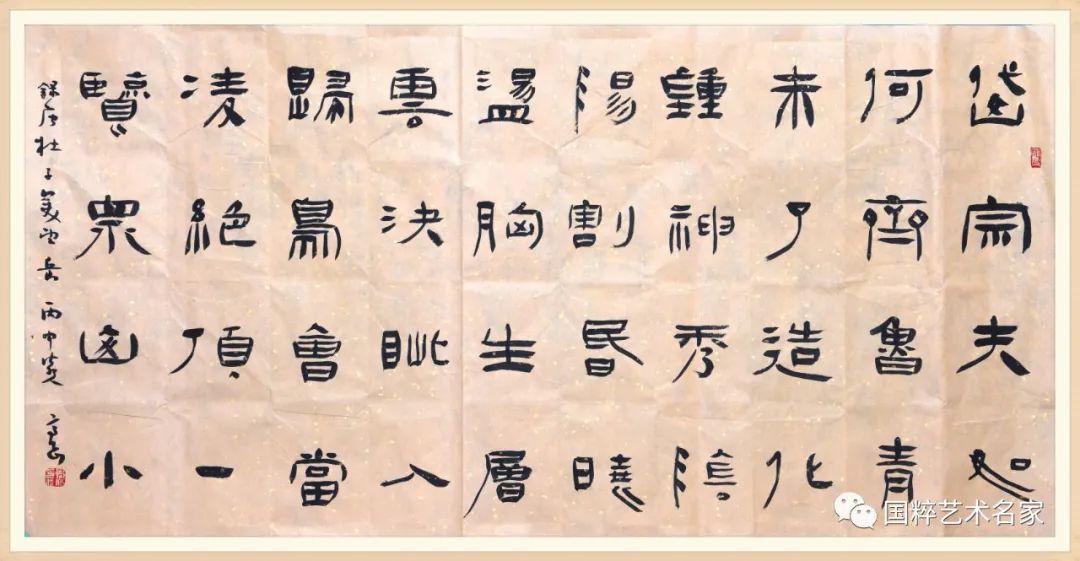 岱宗夫如
何齊魯青
未了造化
鍾神秀陰
陽割昏曉
盪胸生層
雲決眦入
歸鳥會當
凌絕頂一
覽眾山小
錄唐杜子美望岳 丙申
国粹艺术名家